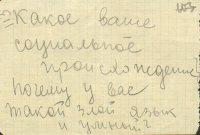 Какое ваше
социальное
происхождение,
почему у вас
такой злой язык
и умный?